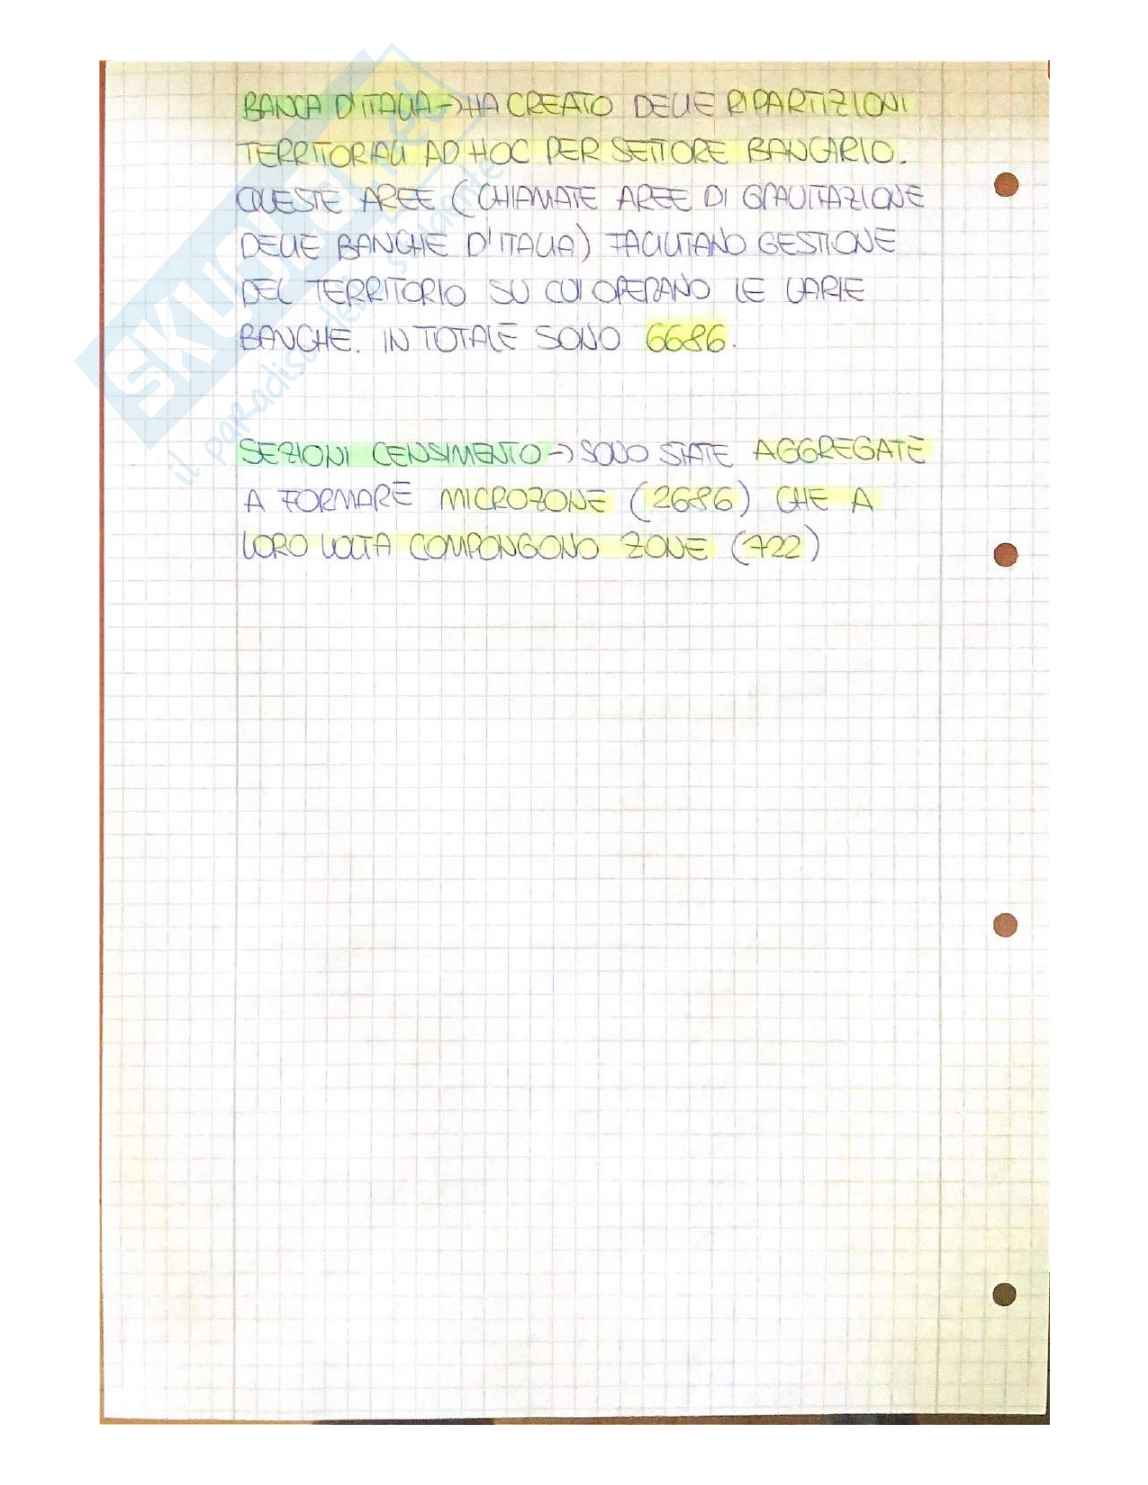 BANCA D'ITALIA → HA CREATO DELLE RIPARTIZIONI
TERRITORIALI AD HOC PER SETTORE BANCARIO.
QUESTE AREE (CHIAMATE AREE DI GRAVITAZIONE
DELLE BANCHE D'ITALIA) FACILITANO GESTIONE
DEL TERRITORIO SU CUI OPERANO LE VARIE
BANCHE. IN TOTALE SONO 6686.
SEZIONI CENSIMENTO → SONO STATE AGGREGATE
A FORMARE MICROZONE (2686) CHE A
LORO VOLTA COMPONGONO ZONE (722)
SKUOLA.net
il paradiso dello studente